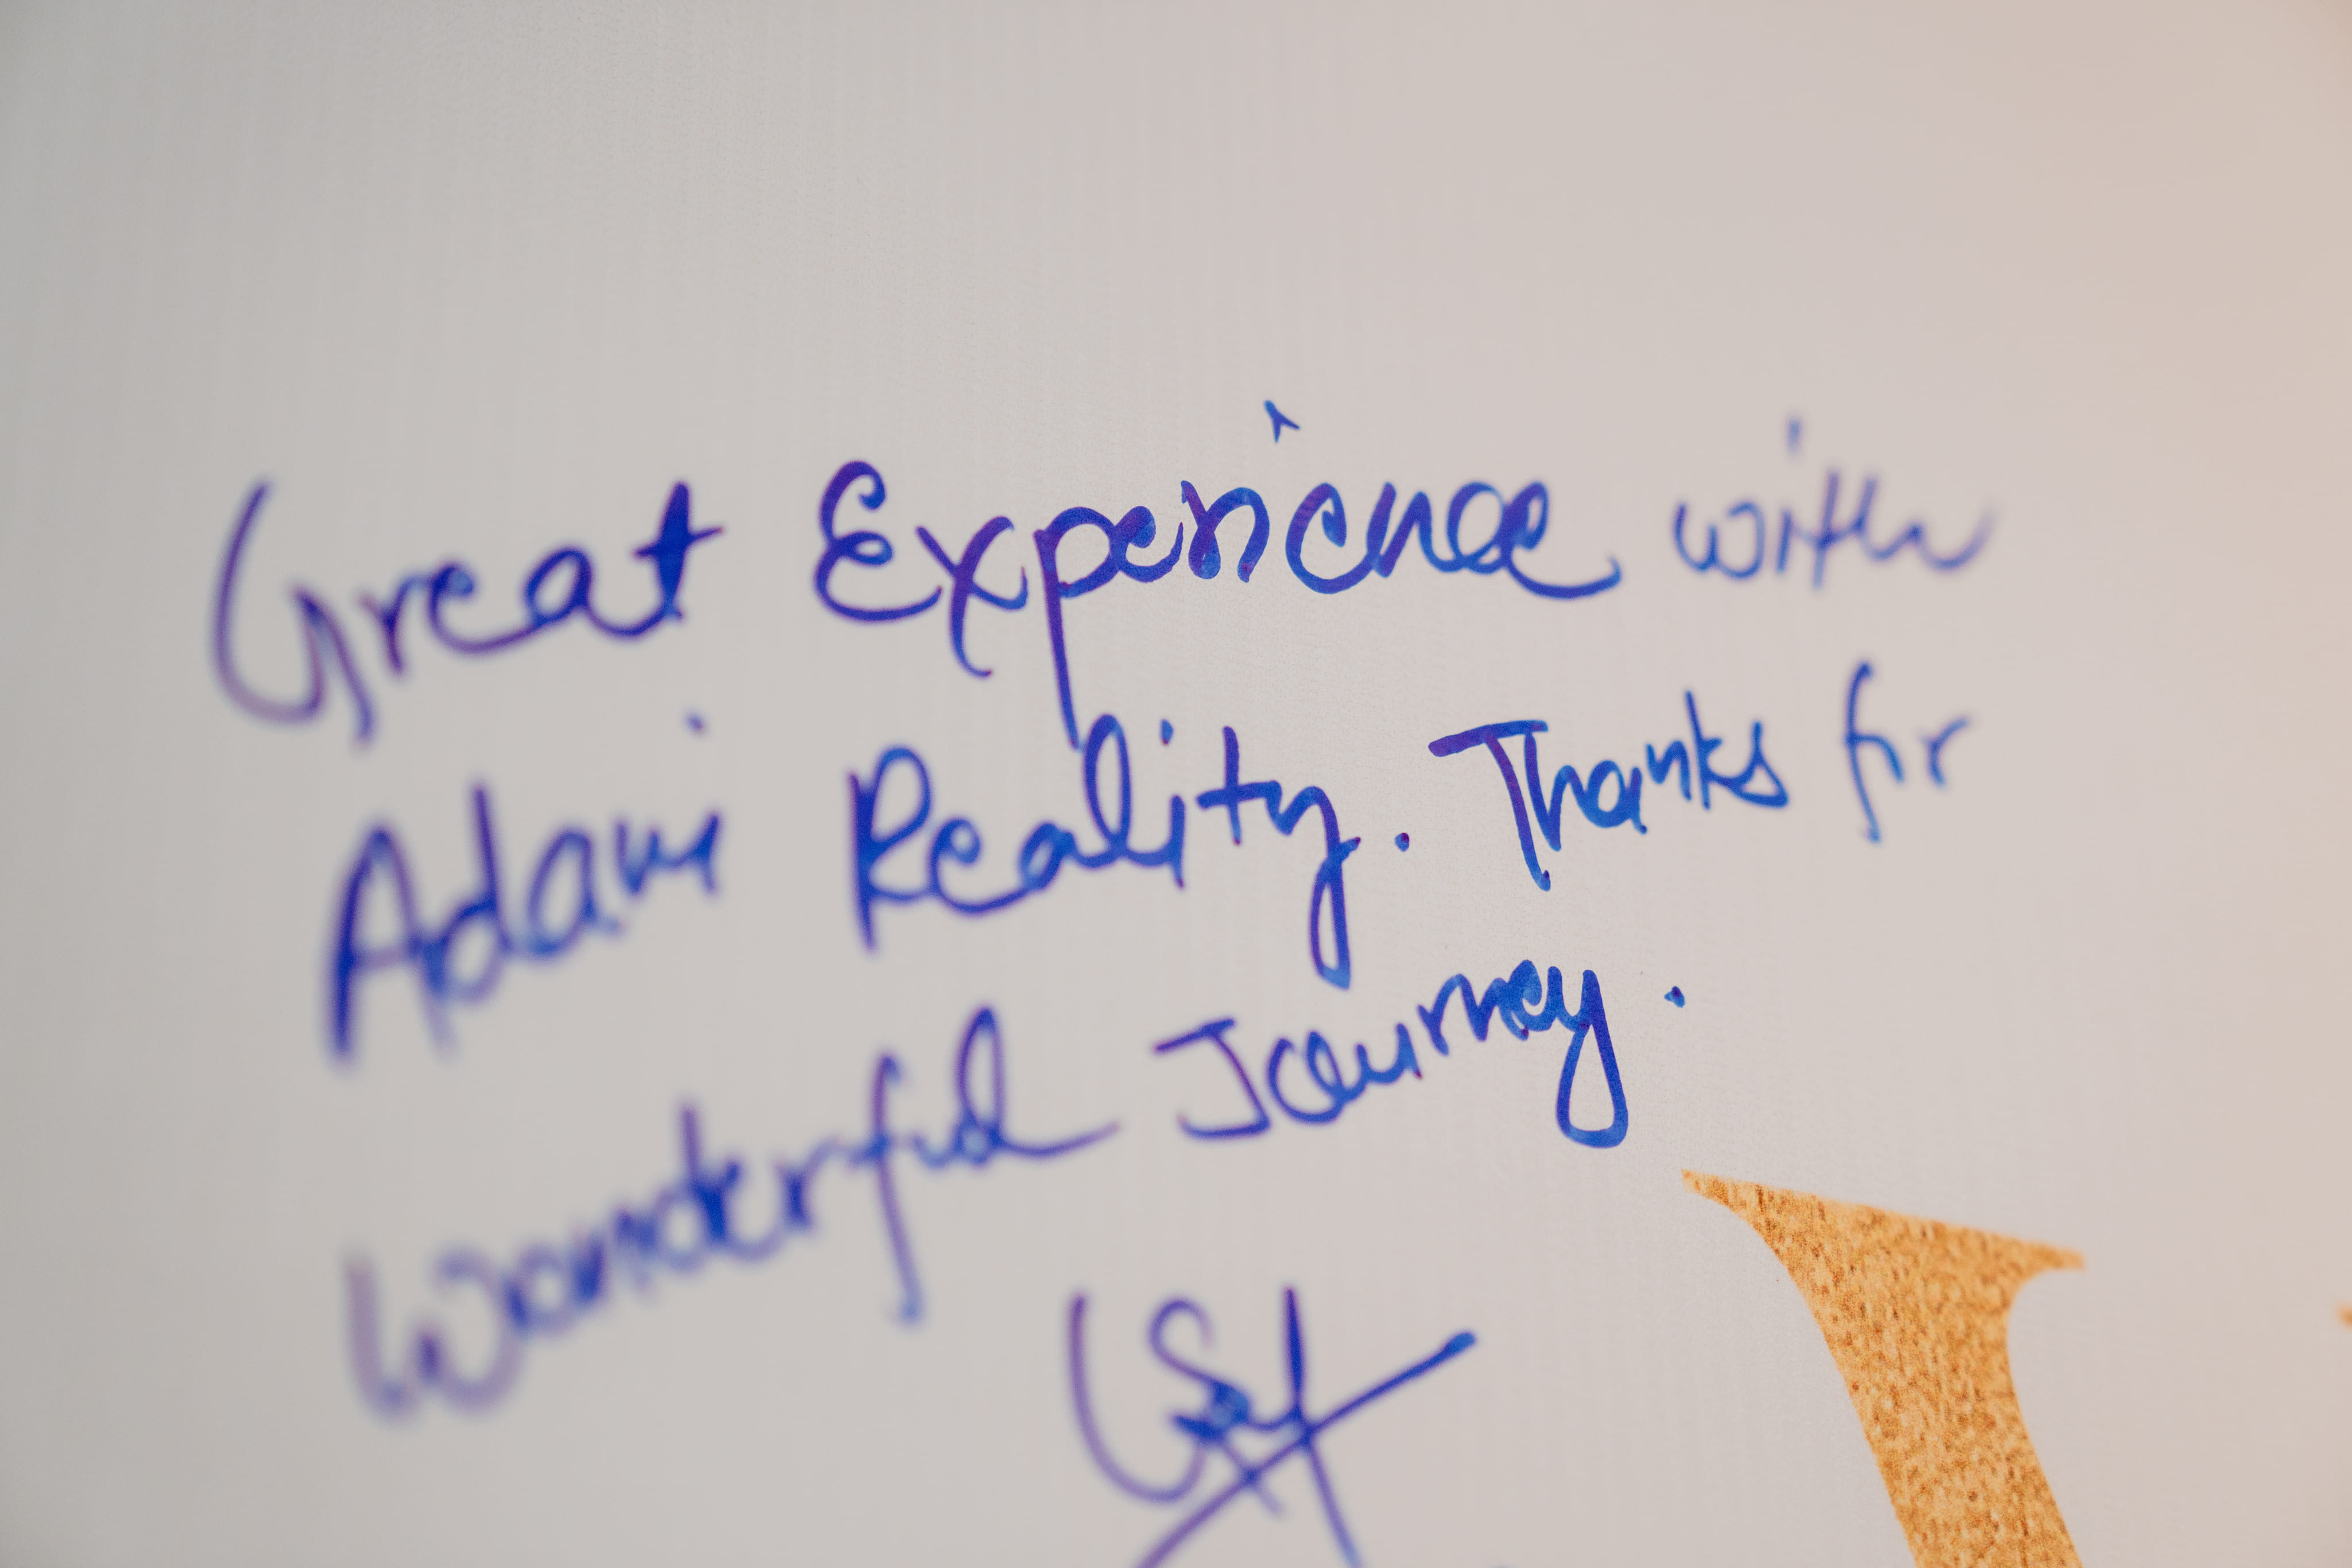 Great Experience with
Adani Reality. Thanks for
Wonderful Journey.